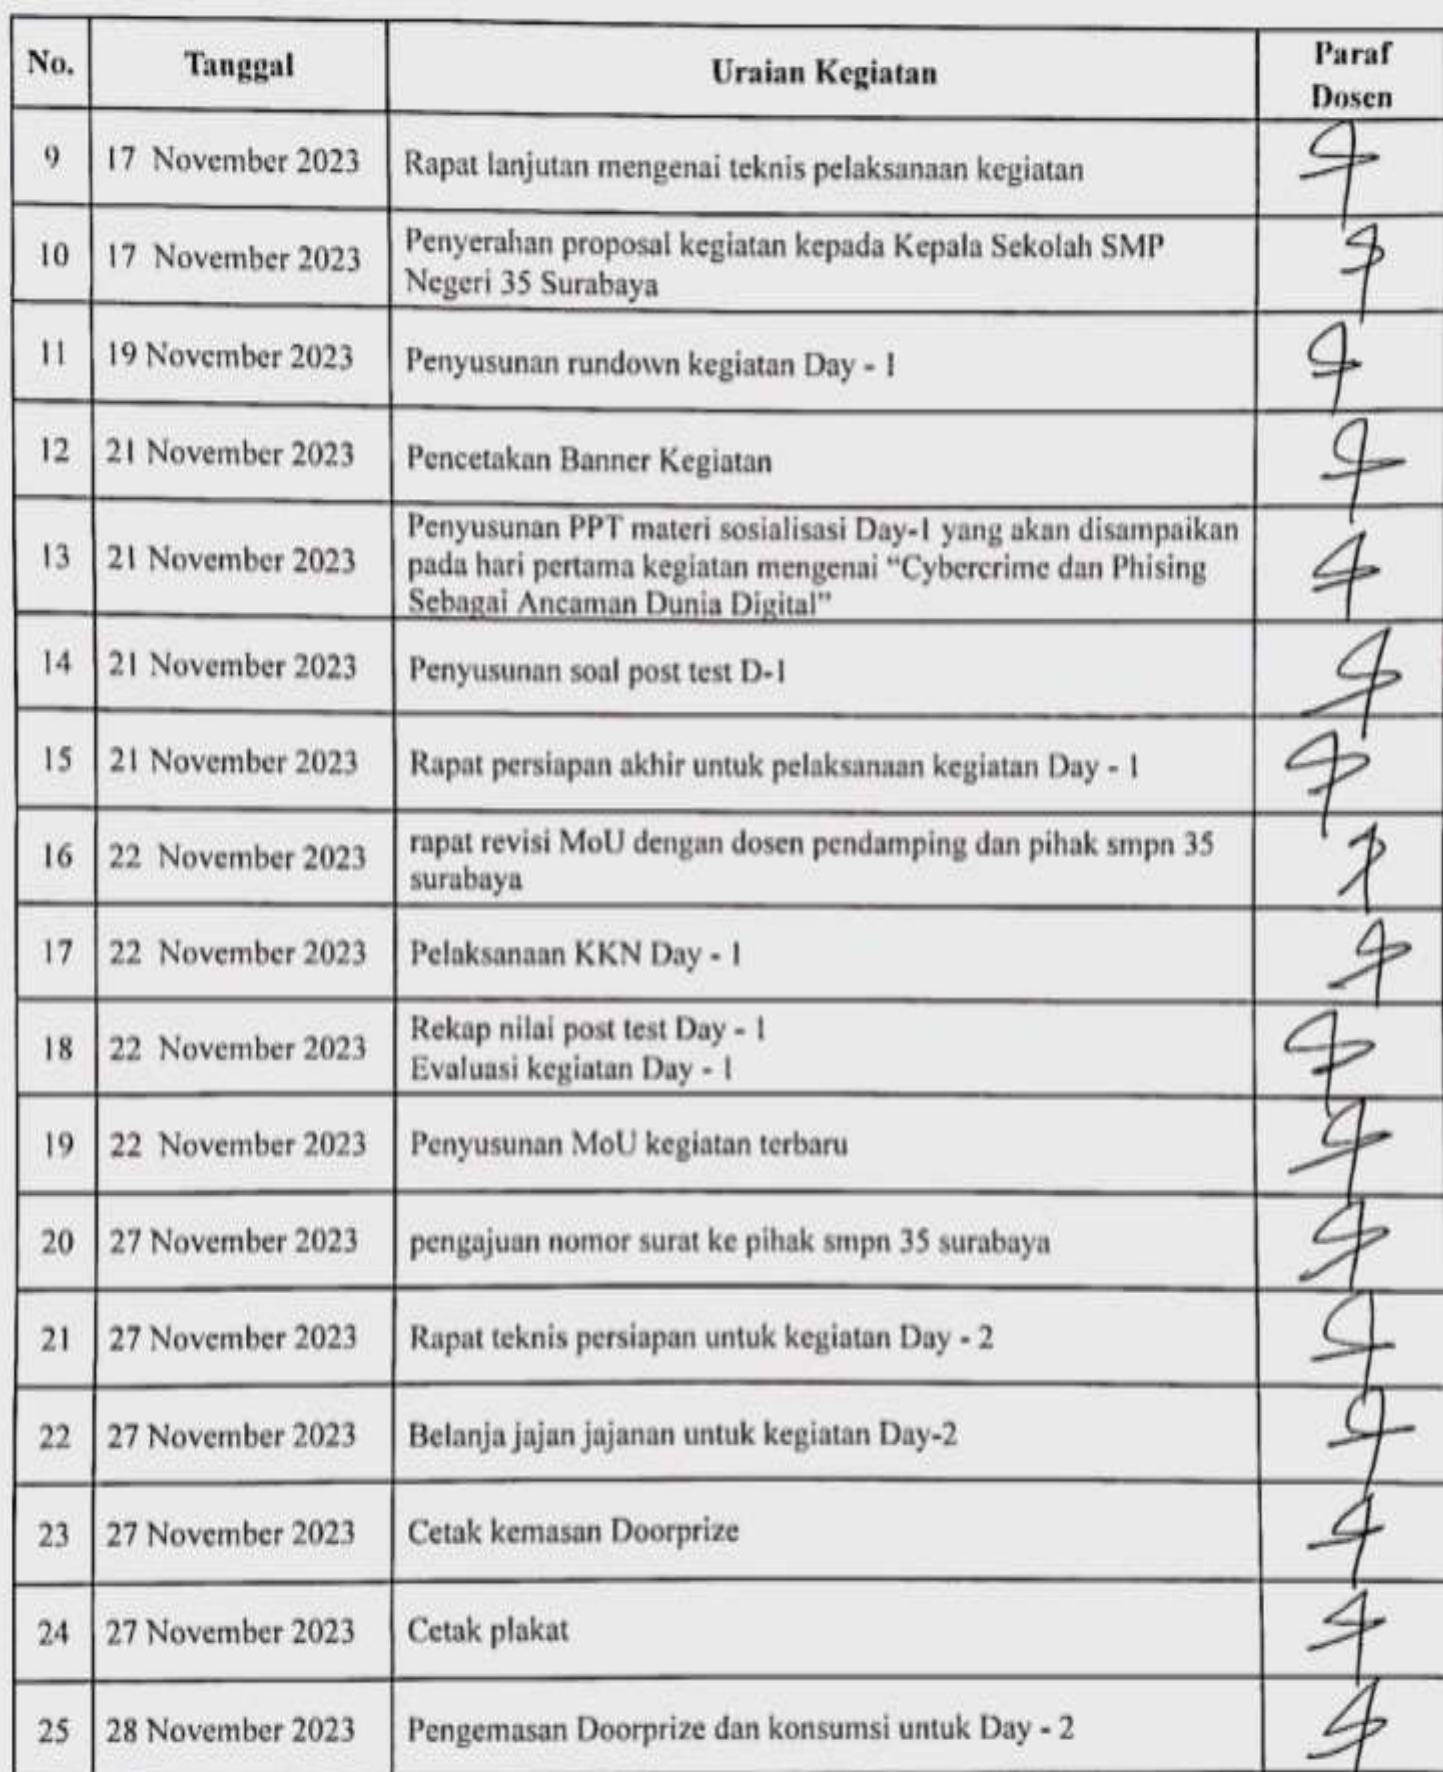 No. Tanggal Uraian Kegiatan Paraf
Dosen
9 17 November 2023 Rapat lanjutan mengenai teknis pelaksanaan kegiatan
10 17 November 2023 Penyerahan proposal kegiatan kepada Kepala Sekolah SMP
Negeri 35 Surabaya
11 19 November 2023 Penyusunan rundown kegiatan Day - 1
12 21 November 2023 Pencetakan Banner Kegiatan
13 21 November 2023 Penyusunan PPT materi sosialisasi Day-1 yang akan disampaikan
pada hari pertama kegiatan mengenai “Cybercrime dan Phising
Sebagai Ancaman Dunia Digital”
14 21 November 2023 Penyusunan soal post test D-1
15 21 November 2023 Rapat persiapan akhir untuk pelaksanaan kegiatan Day - 1
16 22 November 2023 rapat revisi MoU dengan dosen pendamping dan pihak smpn 35
surabaya
17 22 November 2023 Pelaksanaan KKN Day - 1
18 22 November 2023 Rekap nilai post test Day - 1
Evaluasi kegiatan Day - 1
19 22 November 2023 Penyusunan MoU kegiatan terbaru
20 27 November 2023 pengajuan nomor surat ke pihak smpn 35 surabaya
21 27 November 2023 Rapat teknis persiapan untuk kegiatan Day - 2
22 27 November 2023 Belanja jajan jajanan untuk kegiatan Day-2
23 27 November 2023 Cetak kemasan Doorprize
24 27 November 2023 Cetak plakat
25 28 November 2023 Pengemasan Doorprize dan konsumsi untuk Day - 2